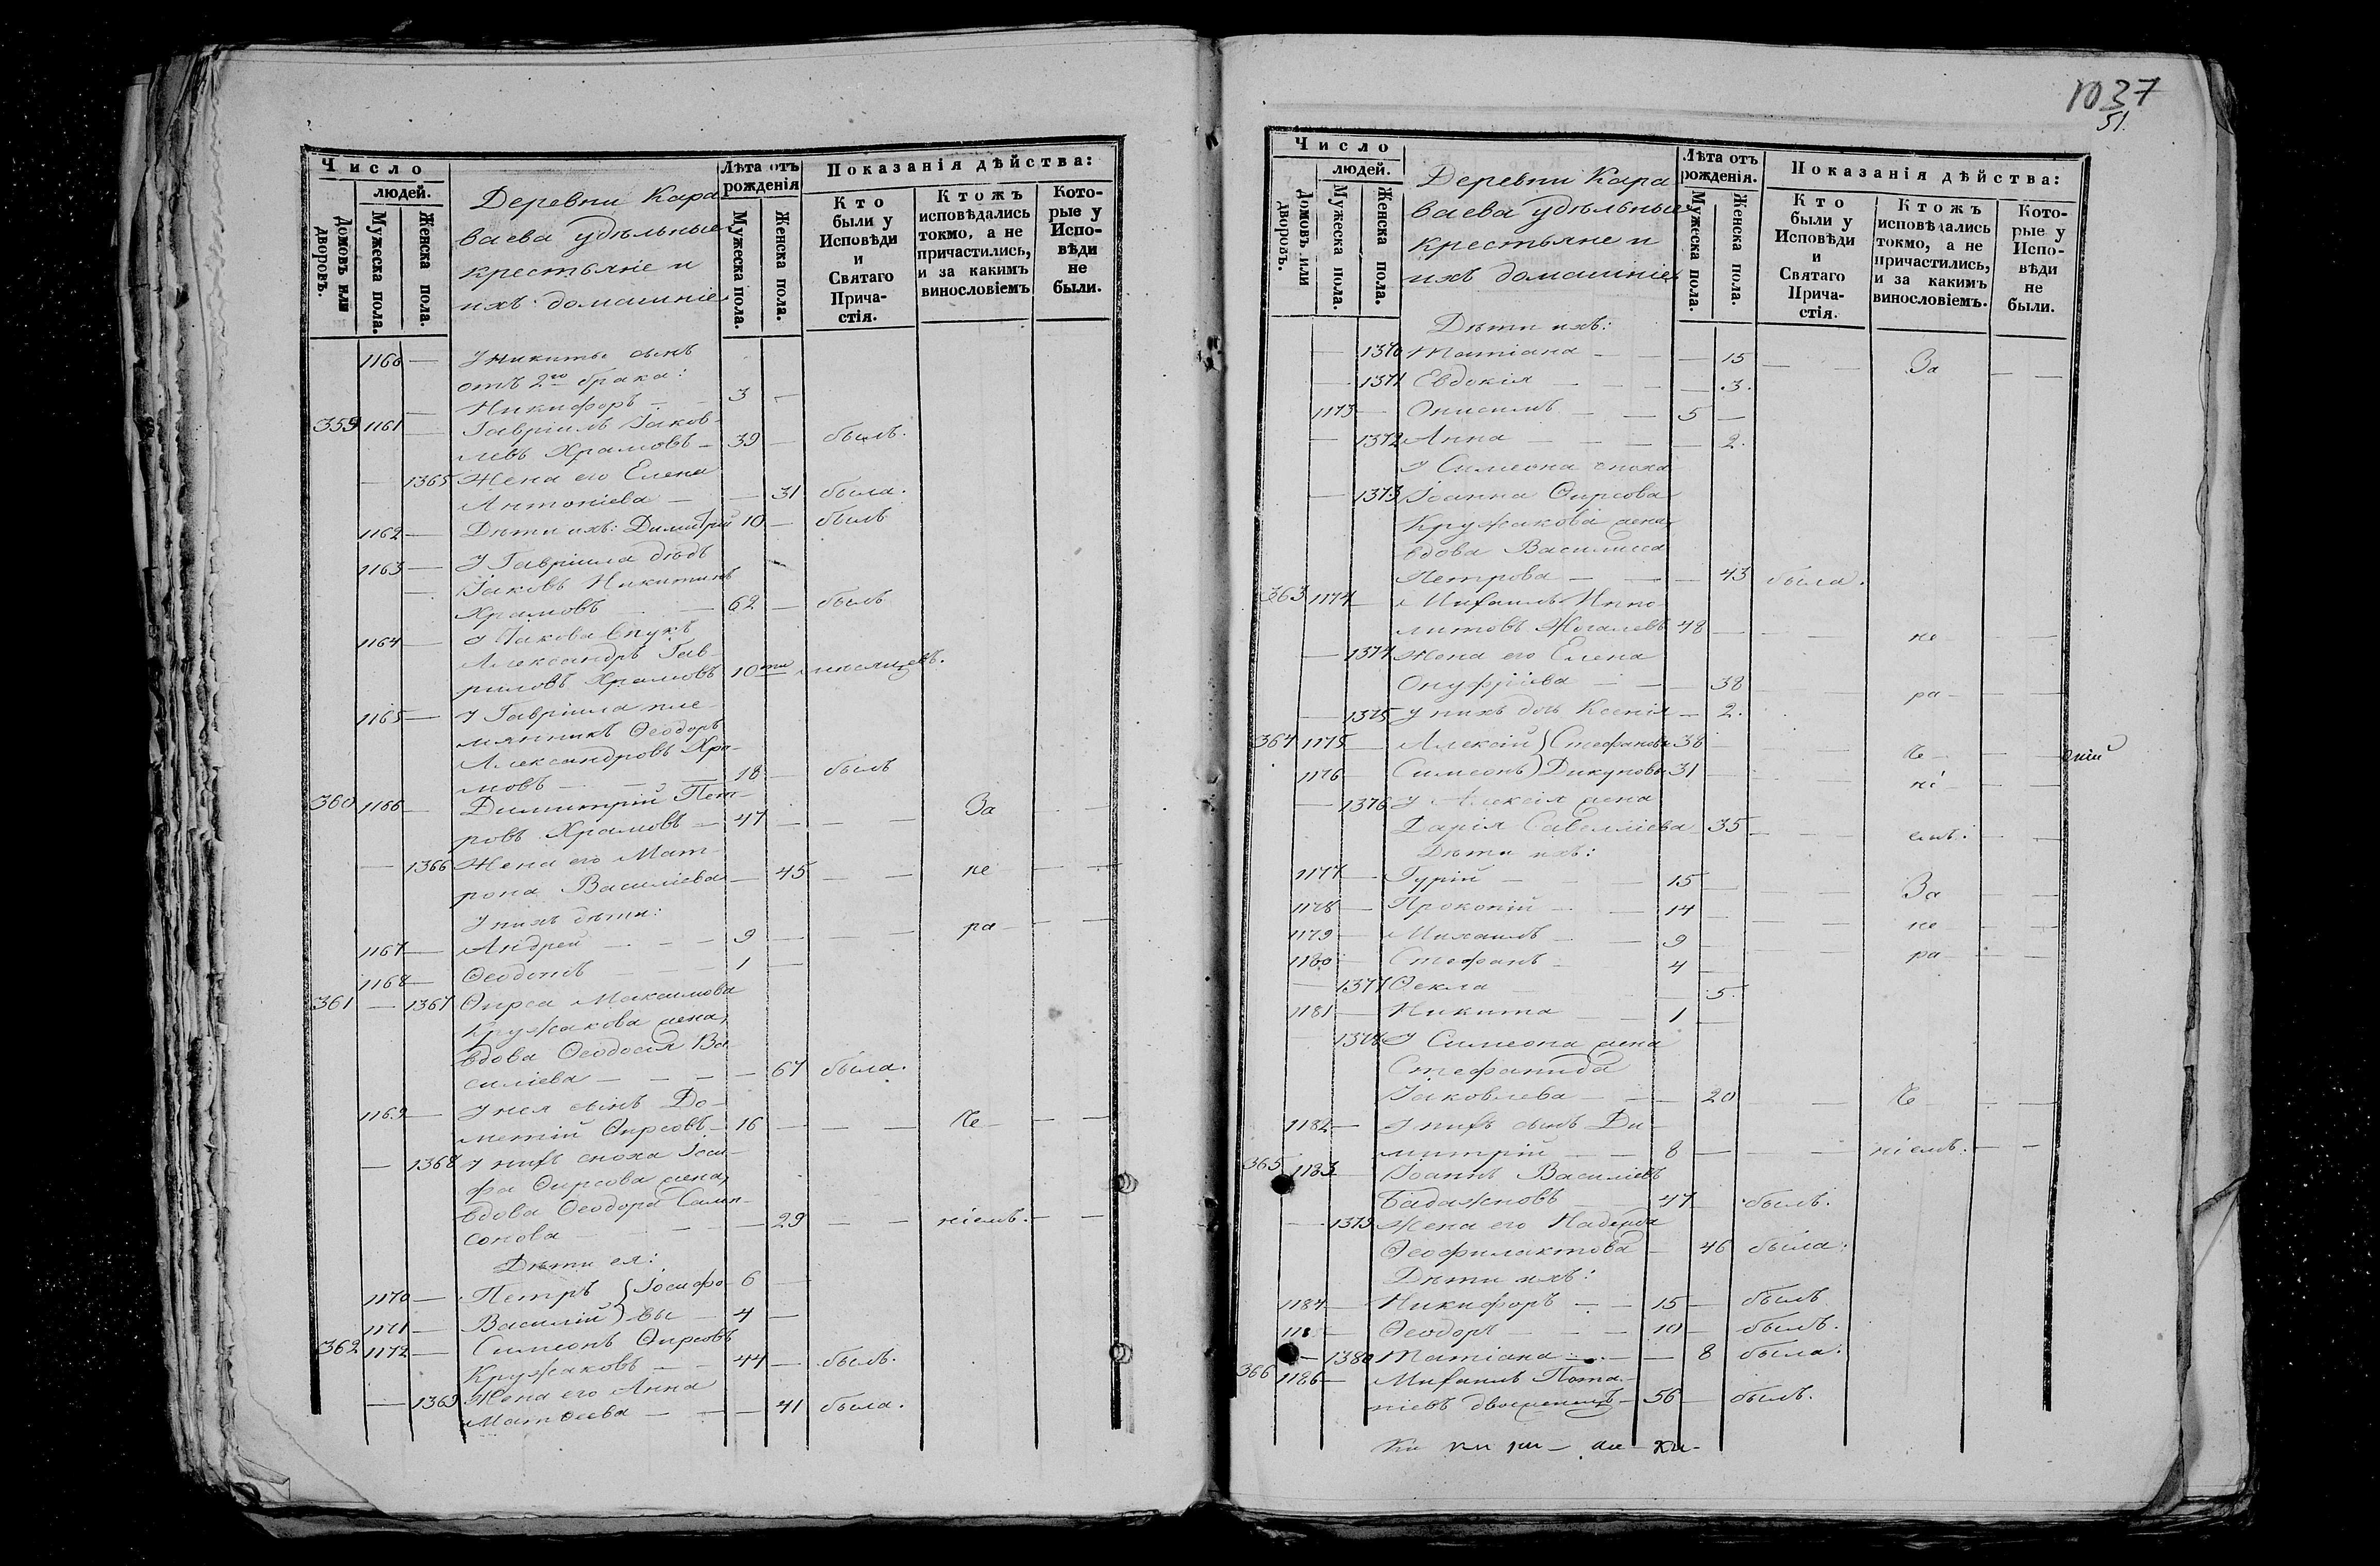 Число
людей.
Домовъ или дворовъ.
Мужеска пола.
Женска пола.
Деревни Кара-
ваева удѣльные
крестьяне и
ихъ домашніе
Лѣта отъ рожденія
Мужеска пола.
Женска пола.
Показанія дѣйства:
Кто были у Исповѣди и Святаго Прича-стія.
Ктожъ исповѣдались токмо, а не причастились, и за какимъ винословіемъ
Кото-рые у Испо-вѣди не были.
1160 — У Никиты сынъ
отъ 2го брака:
Никифоръ — 3 —
359 1161 — Гавріилъ Іаков-
левъ Храмовъ — 39 — былъ.
— 1365 Жена его Елена
Антоніева — — 31 была.
1162 — Дѣти ихъ: Димитрій 10 — былъ
1163 — У Гавріила дѣдъ
Іаковъ Никитинъ
Храмовъ — — 62 — былъ
1164 — У Іакова внукъ
Александръ Гав-
риловъ Храмовъ 10ти мѣсяцевъ.
1165 — У Гавріила пле-
мянникъ Ѳеодоръ
Александровъ Хра-
мовъ — — 18 — былъ
360 1166 — Димитрій Пет-
ровъ Храмовъ — 47 — — — За — —
— 1366 Жена его Мат-
рона Василіева — 45 — — не — —
У нихъ дѣти:
1167 — Андрей — — — 9 — — — ра — — —
1168 — Ѳеодотъ — — 1 —
361 — 1367 Ѳирса Максимова
Кружакова жена,
вдова Ѳеодосія Ва-
силіева — — — — 67 была.
1169 — У нея сынъ До-
метій Ѳирсовъ — 16 — — — че — — —
— 1368 У нихъ сноха Іоси-
фа Ѳирсова жена,
вдова Ѳеодора Самп-
сонова — — — — 29 — — ніемъ. — —
Дѣти ея:
1170 — Петръ } Іосифо- 6 —
1171 — Василій } вы — 4 —
362 1172 — Симеонъ Ѳирсовъ
Кружаковъ — — 44 — былъ.
— 1369 Жена его Анна
Матѳеева — — — 41 была.
1037
51.
Число
людей.
Домовъ или дворовъ.
Мужеска пола.
Женска пола.
Деревни Кара-
ваева удѣльные
крестьяне и
ихъ домашніе
Лѣта отъ рожденія.
Мужеска пола.
Женска пола.
Показанія дѣйства:
Кто были у Исповѣди и Святаго Прича-стія.
Ктожъ исповѣдались токмо, а не причастились, и за какимъ винословіемъ.
Кото-рые у Испо-вѣди не были.
Дѣти ихъ:
— 1370 Татіана — — 15 — — За — —
— 1371 Евдокія — — — — 3.
1173 — Онисимъ — — 5 —
— 1372 Анна — — — — 2.
У Симеона сноха
— 1373 Іоанна Ѳирсова
Кружакова жена,
вдова Василиса
Петрова — — — 43 была.
363 1174 — Михаилъ Иппо-
литовъ Жогалевъ 48 — — не — —
— 1374 Жена его Елена
Онуфріева — — — 38 — ра — — —
— 1375 У нихъ дочь Ксенія — 2.
364 1175 — Алексій } Стефановы 38 — — че — —
1176 — Симеонъ } Дикуновы 31 — — ні — —
— 1376 У Алексія жена
Дарія Савелліева 35 — — емъ. — —
Дѣти ихъ:
1177 — Гурій — — — 15 — — — За — —
1178 — Прокопій — — 14 — — — не — —
1179 — Михаилъ — — 9 — — — ра — — —
1180 — Стефанъ — 4 —
— 1377 Ѳекла — — 5.
1181 — Никита — — 1 —
— 1378 У Симеона жена
Стефанида
Іаковлева — — — 20 — — че — — —
1182 — У нихъ сынъ Ди-
митрій — — 8 — — — ніемъ. — —
365 1183 — Іоаннъ Василіевъ
47 — былъ.
— 1379 Жена его Надежда
Ѳеофилактова — 46 была.
Дѣти ихъ:
1184 — Никифоръ — — 15 — былъ
Ѳеодоръ — — — 10 — былъ.
— 1380 Татіана — — — 8 была.
366 1186 — Михаилъ Пота-
піевъ — 56 — былъ.